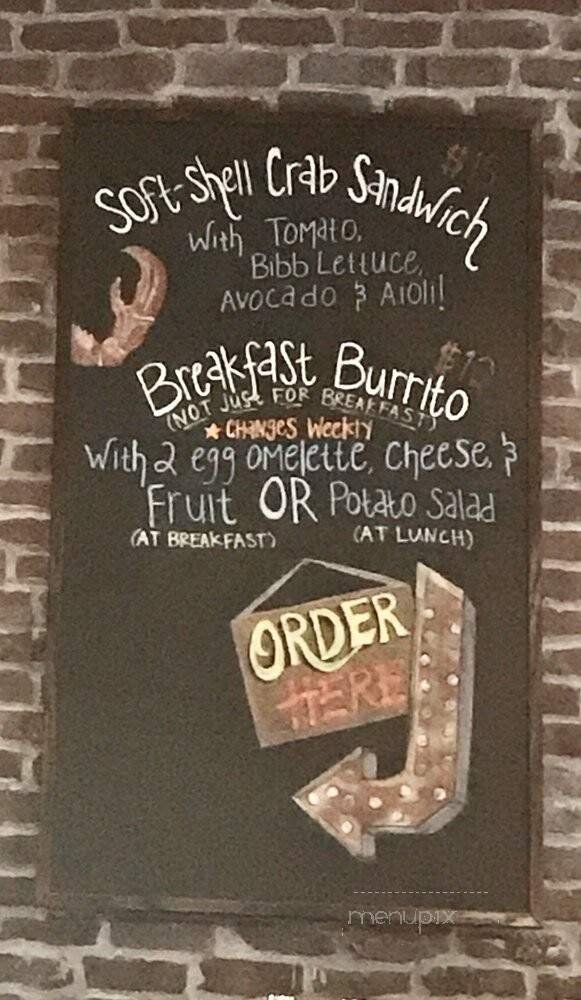 Soft-Shell Crab Sandwich
With Tomato,
Bibb Lettuce,
Avocado & Aioli!
Breakfast Burrito
(NOT JUST FOR BREAKFAST)
★ CHANGES Weekly
With 2 egg omelette, Cheese, &
Fruit OR Potato Salad
(AT BREAKFAST) (AT LUNCH)
ORDER
HERE
menupix